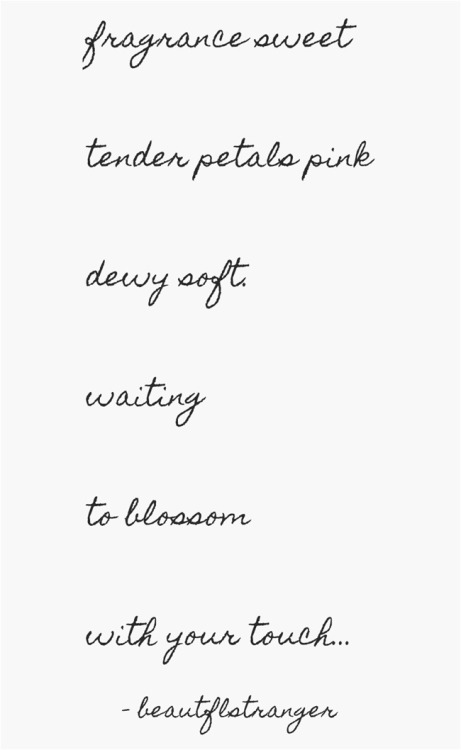 fragrance sweet
tender petals pink
dewy soft.
waiting
to blossom
with your touch...
- beautflstranger